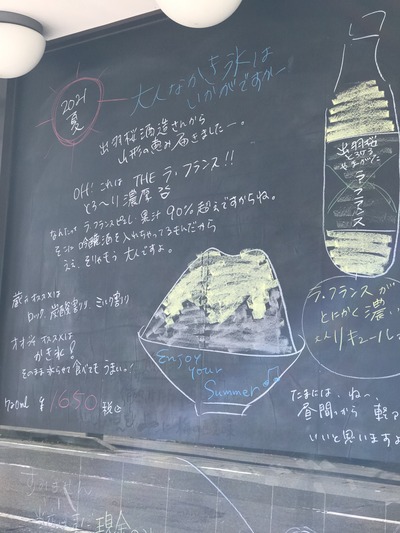 2021
夏
大人なかき氷は
いかがですか〜
出羽桜酒造さんから
山形の恵み届きました〜。
OH! これは THE ラ・フランス!!
とろ〜り濃厚
なんたってラ・フランスピュレ・果汁90%超えですからね。
そこに吟醸酒を入れちゃってるもんだから
ええ、そりゃもう大人ですよ。
蔵元オススメは
ロック、炭酸割り、ミルク割り
オオタオススメは
かき氷!
そのまま氷らせて食べてもうまい。!
720ml ¥1650 税込
出羽桜
とろける
ラフランス
Enjoy
your
Summer♫
ラ・フランスが
とにかく濃い
大人リキュール
たまには、ね〜、
昼間っから軽
いいと思いますよ